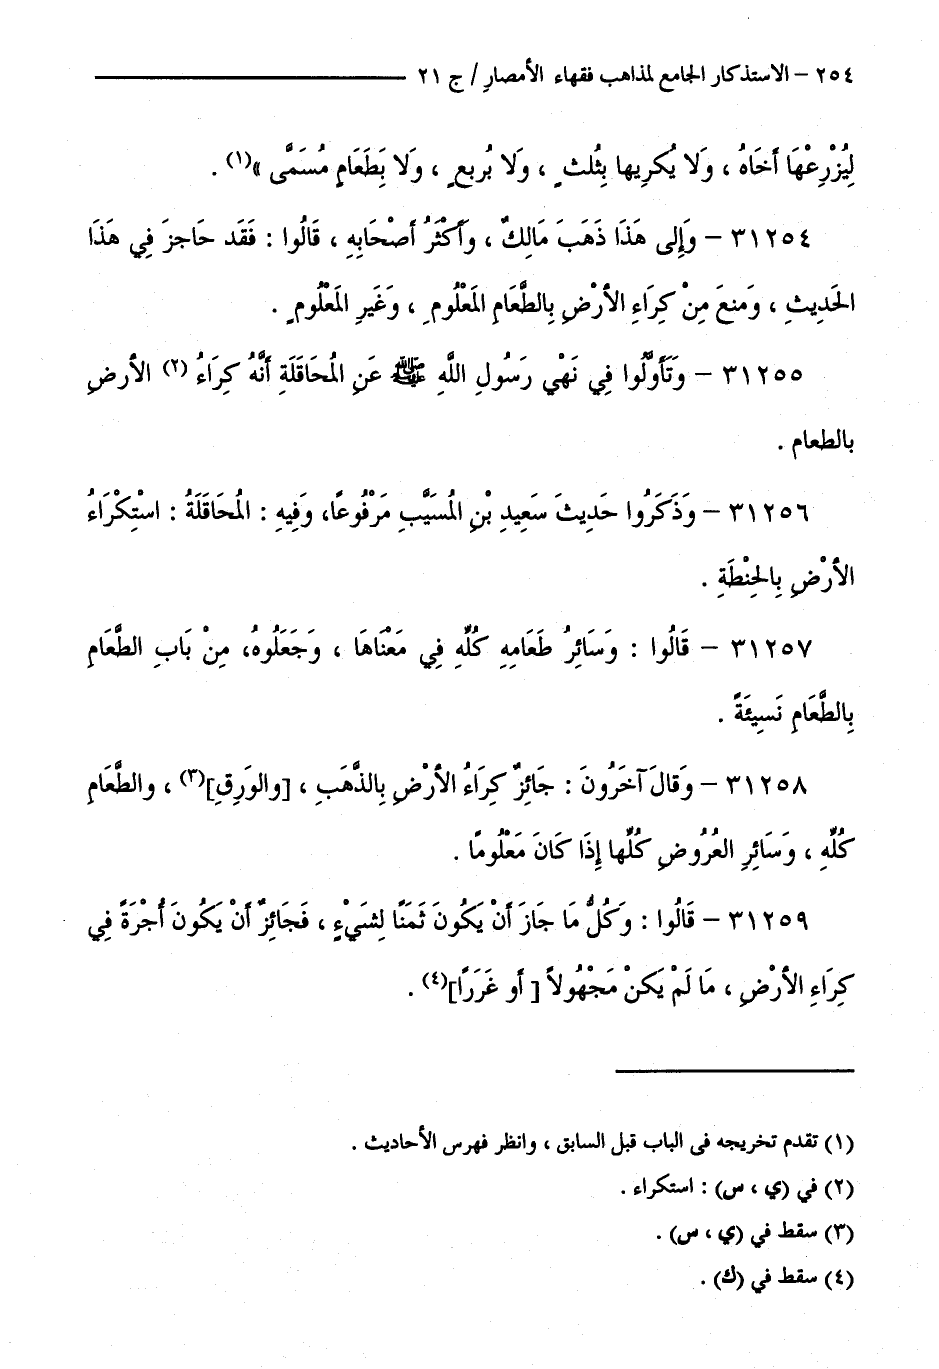 ٢٥٤ – الاستذكار الجامع لمذاهب فقهاء الأمصارِ / ج ٢١
لِيُزْرِعْهَا أَخَاهُ ، وَلا يُكرِيها بِثُلثٍ ، وَلا بُربعٍ ، وَلا بِطَعَامٍ مُسَمَّى »(١) .
٣١٢٥٤ – وَإِلى هَذَا ذَهَبَ مَالِكٌ ، وَأَكْثَرُ أَصْحَابِهِ ، قَالُوا : فَقَد حَاجزَ فِي هَذَا
الحَدِيثِ ، وَمَنعَ مِنْ كِرَاءِ الأَرْضِ بِالطَّعَامِ المَعْلُومِ ، وَغَيرِ المَعْلُومِ .
٣١٢٥٥ – وَتَأَوَّلُوا فِي نَهْي رَسُولِ اللَّهِ ﷺ عَنِ المُحَاقَلَةِ أَنَّهُ كِرَاءُ (٢) الأَرضِ
بالطعام .
٣١٢٥٦ – وَذَكَرُوا حَدِيثَ سَعِيدِ بْنِ المُسَيَّبِ مَرْفُوعًا، وَفِيهِ : المُحَاقَلَةُ : اسْتِكْرَاءُ
الأَرْضِ بِالحِنْطَةِ .
٣١٢٥٧ – قَالُوا : وَسَائِرُ طَعَامِهِ كُلّهِ فِي مَعْنَاهَا ، وَجَعَلُوهُ، مِنْ بَابِ الطَّعَامِ
بِالطَّعَامِ نَسِيئَةً .
٣١٢٥٨ – وَقالَ آخَرُونَ : جَائِزٌ كِرَاءُ الأَرْضِ بِالذَّهَبِ ، [والوَرِقِ](٣) ، والطَّعَامِ
كُلِّهِ ، وَسَائِرِ العُرُوضِ كُلِّها إِذَا كَانَ مَعْلُومًا .
٣١٢٥٩ – قَالُوا : وَكُلُّ مَا جَازَ أَنْ يَكُونَ ثَمَنًا لِشَيْءٍ ، فَجَائِزٌ أَنْ يَكُونَ أُجْرَةً فِي
كِرَاءِ الأَرْضِ ، مَا لَمْ يَكنْ مَجْهُولاً [ أو غَرَرًا](٤) .
(١) تقدم تخريجه فى الباب قبل السابق ، وانظر فهرس الأحاديث .
(٢) في (ي ، س) : استكراء .
(٣) سقط في (ي ، س) .
(٤) سقط في (ك) .